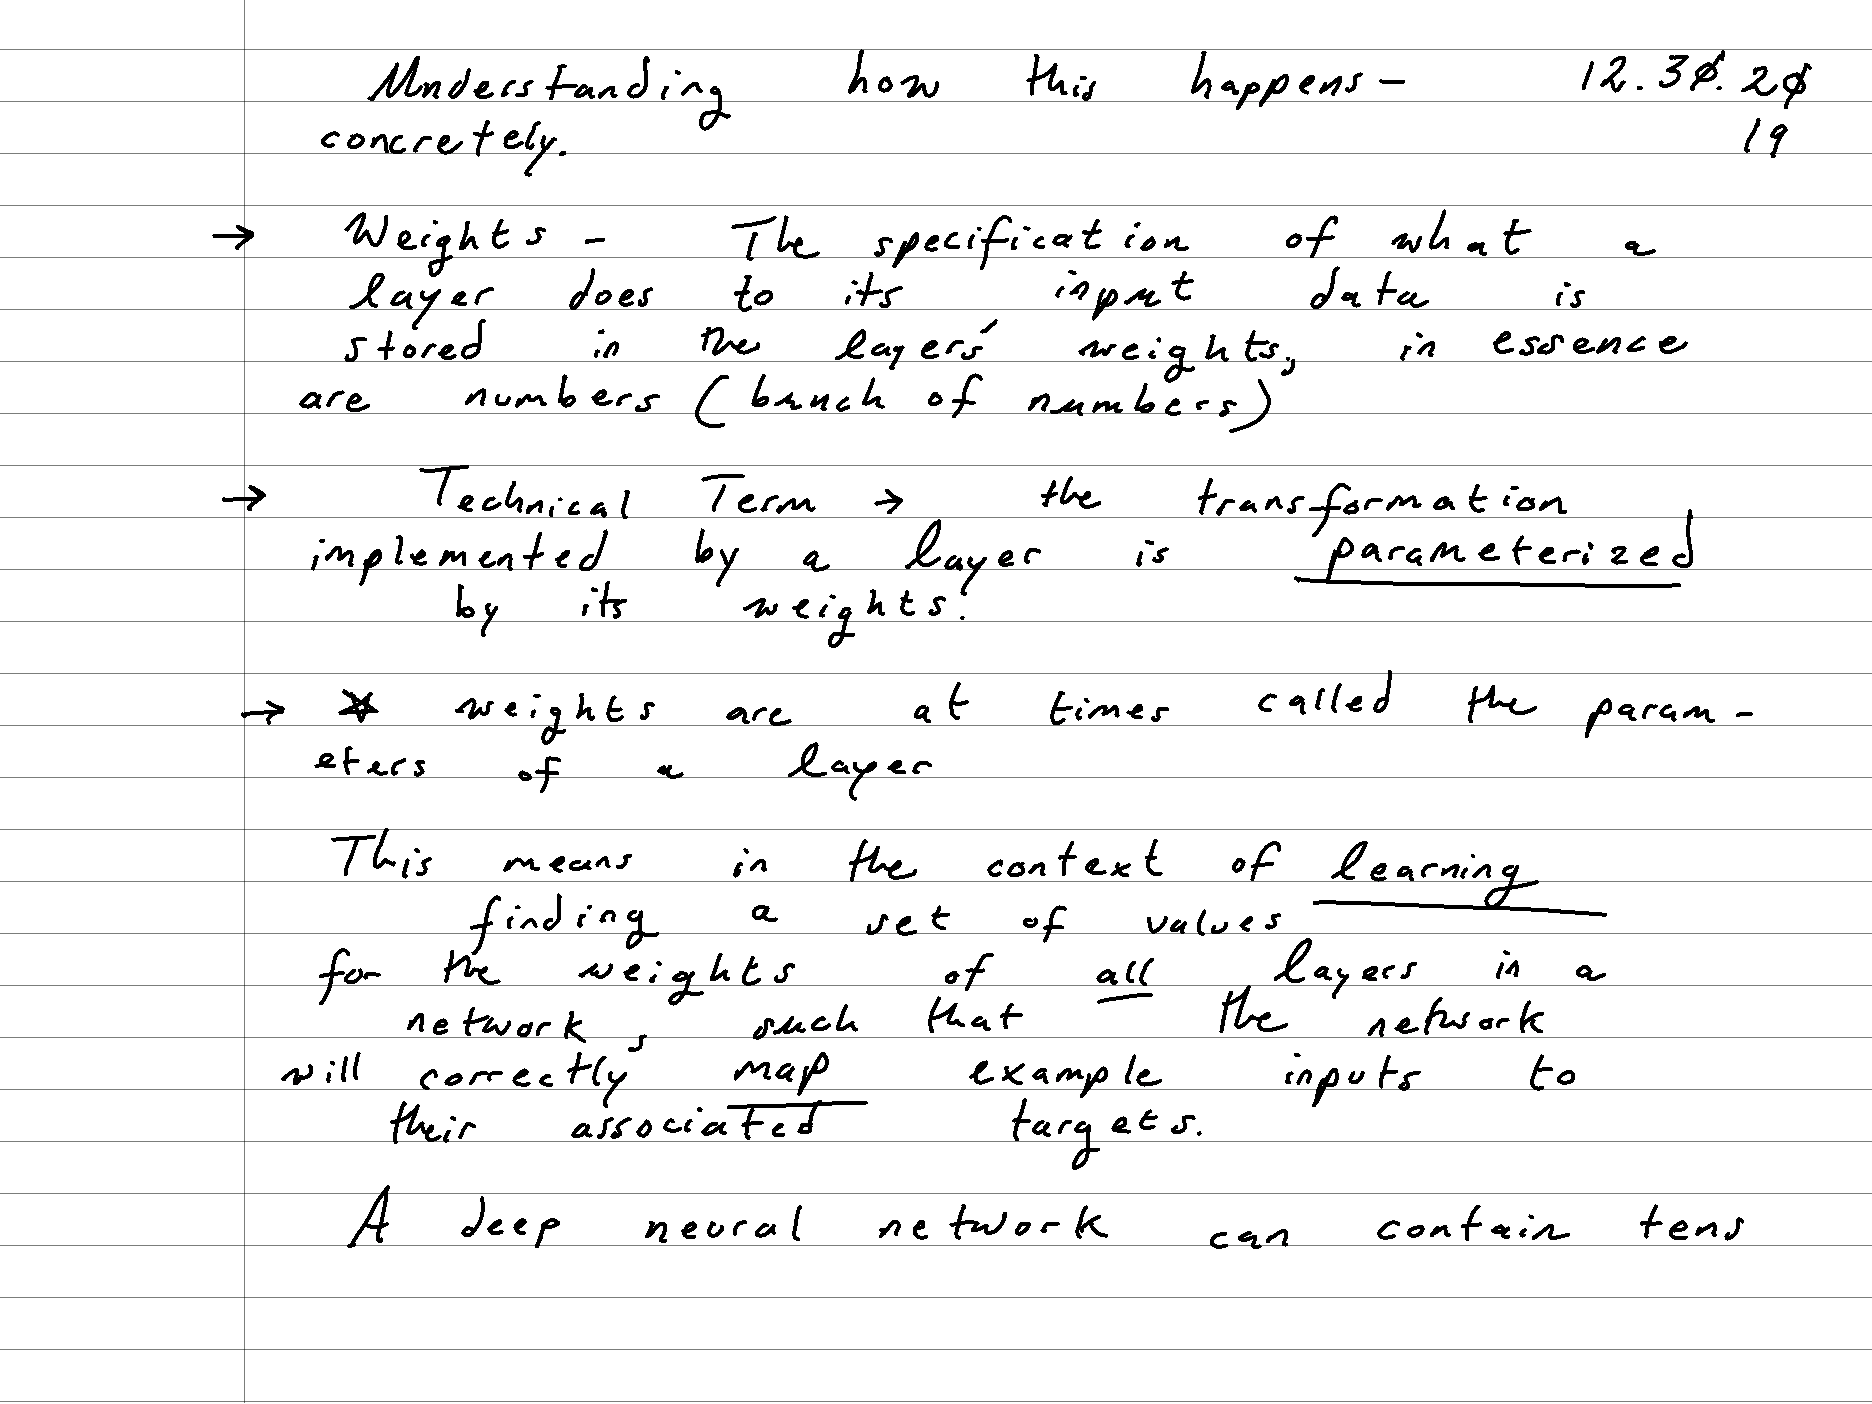 Understanding how this happens - 12.30.20
concretely. 19
→ Weights - The specification of what a
layer does to its input data is
stored in the layers' weights, in essence
are numbers (bunch of numbers)
→ Technical Term → the transformation
implemented by a layer is parameterized
by its weights.
→ ☆ weights are at times called the param-
eters of a layer
This means in the context of learning
finding a set of values
for the weights of all layers in a
network, such that the network
will correctly map example inputs to
their associated targets.
A deep neural network can contain tens